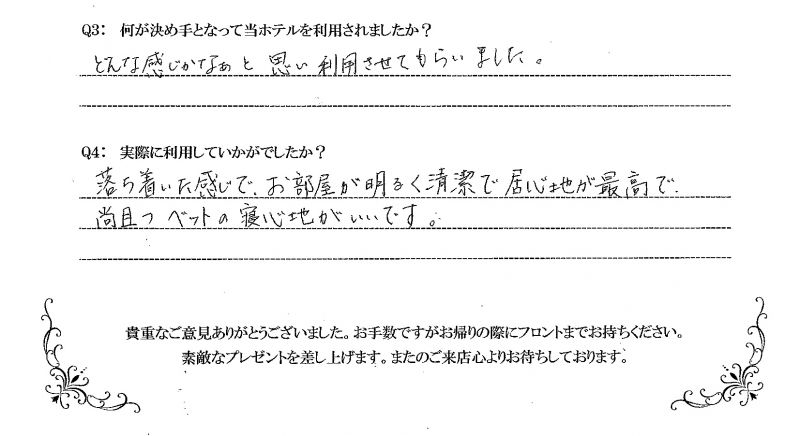 Q3： 何が決め手となって当ホテルを利用されましたか？
どんな感じかなぁと思い利用させてもらいました。
Q4： 実際に利用していかがでしたか？
落ち着いた感じで、お部屋が明るく清潔で居心地が最高で、
尚且つベットの寝心地がいいです。
貴重なご意見ありがとうございました。お手数ですがお帰りの際にフロントまでお持ちください。
素敵なプレゼントを差し上げます。またのご来店心よりお待ちしております。